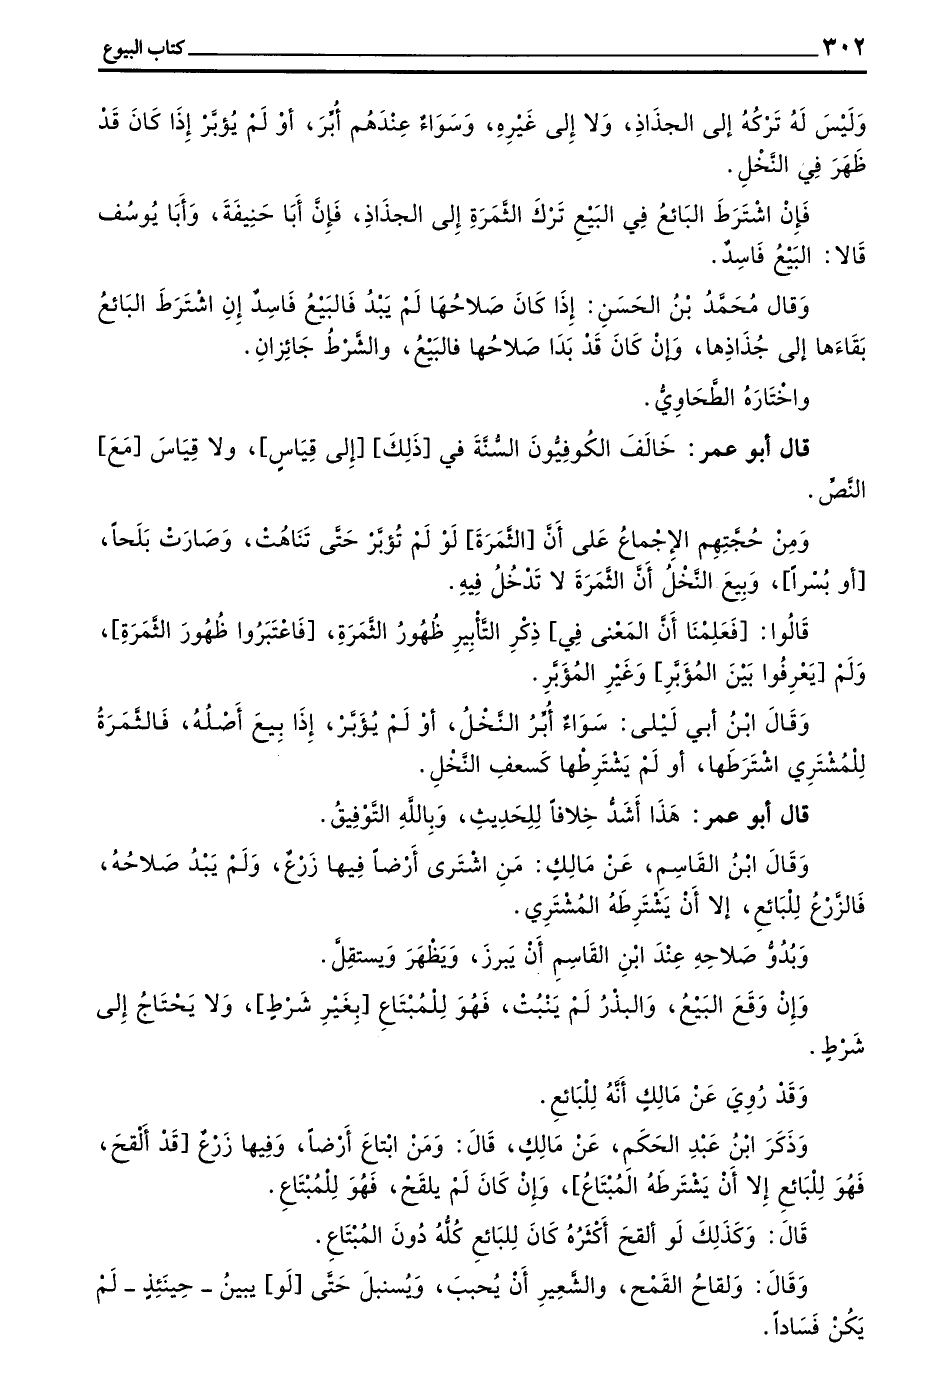 ٣٠٢ كتاب البيوع
وَلَيْسَ لَهُ تَرْكُهُ إلى الجذاذِ، وَلا إلى غَيْرِهِ، وَسَوَاءٌ عِنْدَهُم أُبِّرَ، أوْ لَمْ يُؤبَّرْ إذَا كَانَ قَدْ
ظَهَرَ فِي النَّخْلِ.
فَإِنْ اشْتَرَطَ البَائعُ فِي البَيْعِ تَرْكَ الثَّمَرَةِ إِلى الجذاذِ، فَإِنَّ أَبَا حَنِيفَةَ، وَأَبَا يُوسُف
قَالا: البَيْعُ فَاسِدٌ.
وَقال مُحَمَّدُ بْنُ الحَسَنِ: إذَا كَانَ صَلاحُهَا لَمْ يَبْدُ فَالبَيْعُ فَاسِدٌ إِنِ اشْتَرَطَ البَائعُ
بَقَاءَها إلى جُذَاذِها، وَإنْ كَانَ قَدْ بَدَا صَلاحُها فالبَيْعُ، والشَّرْطُ جَائِزانِ.
واخْتَارَهُ الطَّحَاوِيُّ.
قال أبو عمر: خَالَفَ الكُوفِيُّونَ السُّنَّةَ في [ذَلِكَ] [إلى قِيَاسٍ]، ولا قِيَاسَ [مَعَ]
النَّصِّ.
وَمِنْ حُجَّتِهِم الإجْماعُ عَلى أَنَّ [الثَّمَرَةَ] لَوْ لَمْ تُؤبَّرْ حَتَّى تَنَاهُتْ، وَصَارَتْ بَلَحاً،
[أو بُسْراً]، وَبِيعَ النَّخْلُ أَنَّ الثَّمَرَةَ لا تَدْخُلُ فِيهِ.
قَالُوا: [فَعَلِمْنَا أَنَّ المَعْنى فِي] ذِكْرِ التَّأْبِيرِ ظُهُورُ الثَّمَرَةِ، [فَاعْتَبَرُوا ظُهُورَ الثَّمَرَةِ]،
وَلَمْ [يَعْرِفُوا بَيْنَ المُؤبَّرِ] وَغَيْرِ المُؤَبَّرِ.
وَقَالَ ابْنُ أبي لَيْلى: سَوَاءٌ أُبِّرُ النَّخْلُ، أوْ لَمْ يُؤَبَّرْ، إذَا بِيعَ أَصْلُهُ، فَالثَّمَرَةُ
لِلْمُشْتَرِي اشْتَرَطَها، أو لَمْ يَشْتَرِطْها كَسعفِ النَّخْلِ.
قال أبو عمر: هَذَا أَشَدُّ خِلافاً لِلِحَدِيثِ، وَبِاللَّهِ التَّوْفِيقُ.
وَقَالَ ابْنُ القَاسِمِ، عَنْ مَالِكٍ: مَنِ اشْتَرى أَرْضاً فِيها زَرْعٌ، وَلَمْ يَبْدُ صَلاحُهُ،
فَالزَّرْعُ لِلْبَائعِ، إلا أَنْ يَشْتَرِطَهُ المُشْتَرِي.
وَبُدُوُّ صَلاحِهِ عِنْدَ ابْنِ القَاسِمِ أَنْ يَبرزَ، وَيَظْهَرَ وَيستقِلَّ.
وَإِنْ وَقَعَ البَيْعُ، وَالبذْرُ لَمْ يَنْبُتْ، فَهُوَ لِلْمُبْتَاعِ [بِغَيْرِ شَرْطٍ]، وَلا يَحْتَاجُ إِلى
شَرْطٍ.
وَقَدْ رُوِيَ عَنْ مَالِكٍ أَنَّهُ لِلْبَائعِ.
وَذَكَرَ ابْنُ عَبْدِ الحَكَمِ، عَنْ مَالِكٍ، قَالَ: وَمَنْ ابْتاعَ أَرْضاً، وَفِيها زَرْعٌ [قَدْ ألْقحَ،
فَهُوَ لِلْبَائعِ إلا أَنْ يَشْتَرطَهُ المُبْتَاعُ]، وَإِنْ كَانَ لَمْ يلقَحْ، فَهُوَ لِلْمُبْتَاعِ.
قَالَ: وَكَذَلِكَ لَو ألقحَ أَكْثَرُهُ كَانَ لِلبَائعِ كُلُّهُ دُونَ المُبْتَاعِ.
وَقَالَ: وَلقاحُ القَمْحِ، والشَّعِيرِ أَنْ يُحببَ، وَيُسنبلَ حَتَّى [لَو] يبينُ ـ حِينَئِذٍ ـ لَمْ
يَكُنْ فَسَاداً.